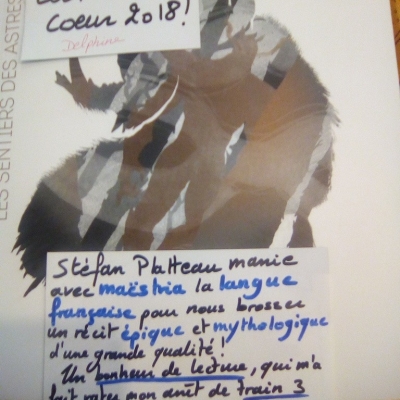 coeur 2018!
Delphine
LES SENTIERS DES ASTRES
Stéfan Platteau manie
avec maëstria la langue
française pour nous brosser
un récit épique et mythologique
d'une grande qualité!
Un bonheur de lecture, qui m'a
fait rater mon arrêt de train 3